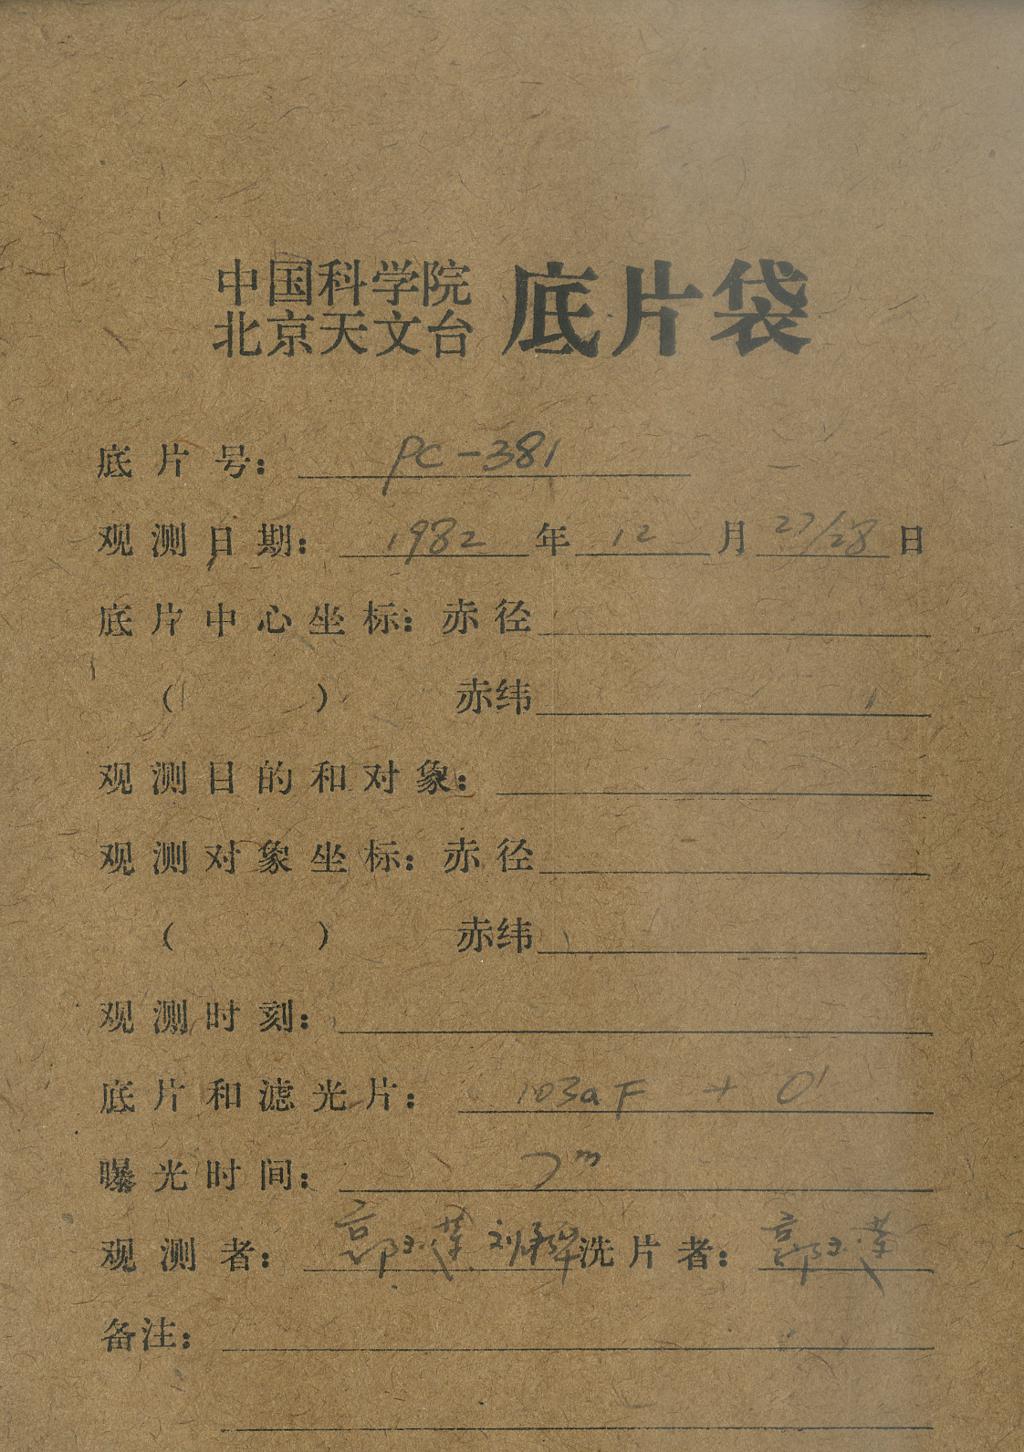 中国科学院
北京天文台 底片袋
底片号: PC-381
观测日期: 1982 年 12 月 27/28 日
底片中心坐标: 赤径
( ) 赤纬
观测目的和对象:
观测对象坐标: 赤径
( ) 赤纬
观测时刻:
底片和滤光片: 103aF + O'
曝光时间: 7m
观测者: 郭玉莲 刘 洗片者: 郭玉莲
备注: